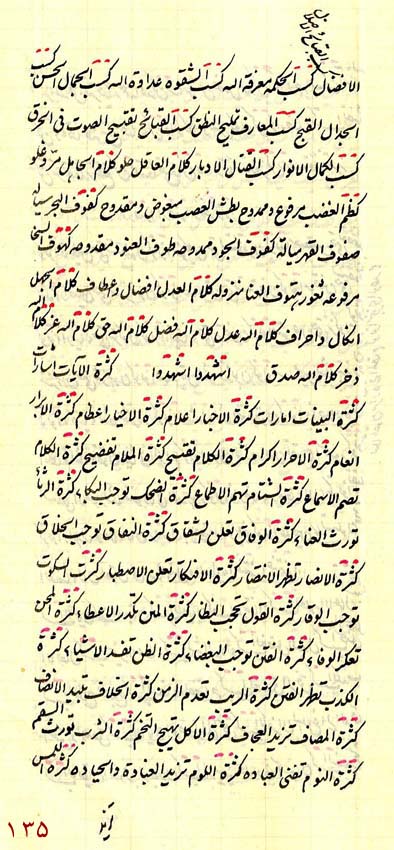 الافضال كسب الحكمة معرفة الله كسب الشقوه عداوة الله كسب الجمال الحسن كسب
الجدال القبح كسب المعارف تمليح النطق كسب القبائح تقبيح الصوت فى الخرق
كسب الكمال الانوار كسب القتال الادبار كلام العاقل حلو كلام الجاهل مرّ وغلو
كظم الغضب مرفوع وممدوح بطش الغصب مبغوض ومقدوح كفوف البحر سياله
صفوف القهر مياله كفوف الجود ممدوحه طوف العنود مقدوحه كهوف السخا
مرفوعه ثغور كهوف العنا منزوله كلام العدل افضال واعطاف كلام الجهل
انكال واحراف كلام الله عدل كلام الله فضل كلام الله حق كلام الله عز كلام الله
ذخر كلام الله صدق اشهدوا اشهدوا كثرة الآيات اشارات
كثرة البينات امارات كثرة الاخبار اعلام كثرة الاخيار اعظام كثرة الابرار
انعام كثرة الاحرار اكرام كثرة الكلام تقبيح كثرة الملام تفضيح كثرة الكلام
تصم الاسماع كثرة الشتام تهم الاطماع كثرة الضحك توجب البكاء كثرة
تورث العناء كثرة الوفاق تعلن الشقاق كثرة النفاق توجب الخلاق
كثرة الانصار تظهر الانتصار كثرة الافتكار تعلن الاصطبار كثرت السكوت
توجب الوقار كثرة القول تحجب النظار كثرة المنن تكدر الاعطاء كثرة المحن
تعكر الوفاء كثرة الفتن توجب البغضاء كثرة الظن تفسد الاشياء كثرة
الكذب تظهر الفتن كثرة الريب تعدم الزمن كثرة الخلاف تبيد الانصاف
كثرة المصاف تزيد العجاف كثرة الاكل تهيج التخم كثرة الشرب تورث السقم
كثرة النوم تفنى العباده كثرة اللوم تزيد العبادة والحياده كثرة اللبس
١٣٥